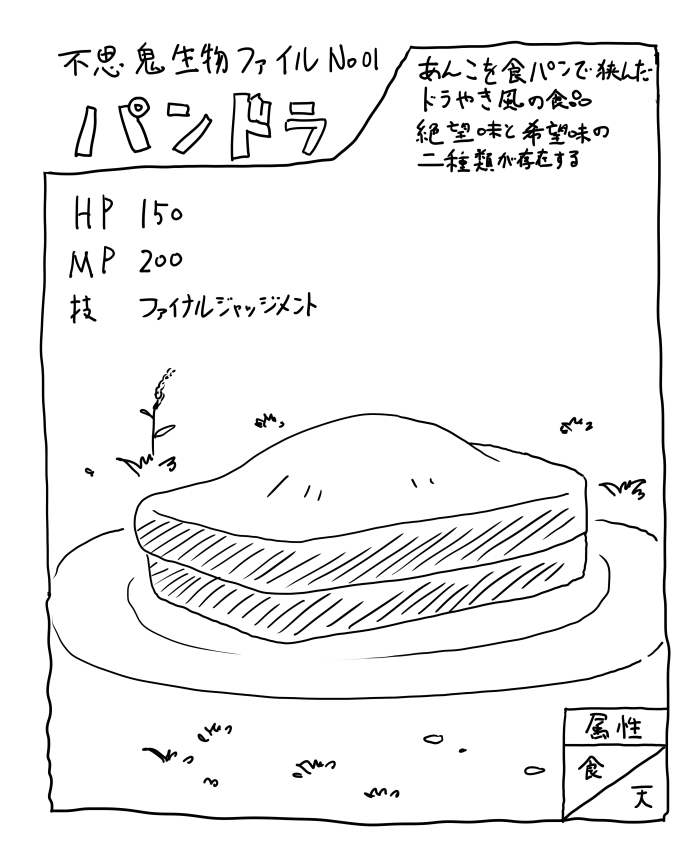 不思鬼生物ファイルNo01
パンドラ
あんこを食パンで狭んだ
ドラやき風の食品
絶望味と希望味の
二種類が存在する
HP 150
MP 200
技 ファイナルジャッジメント
属性
食
天